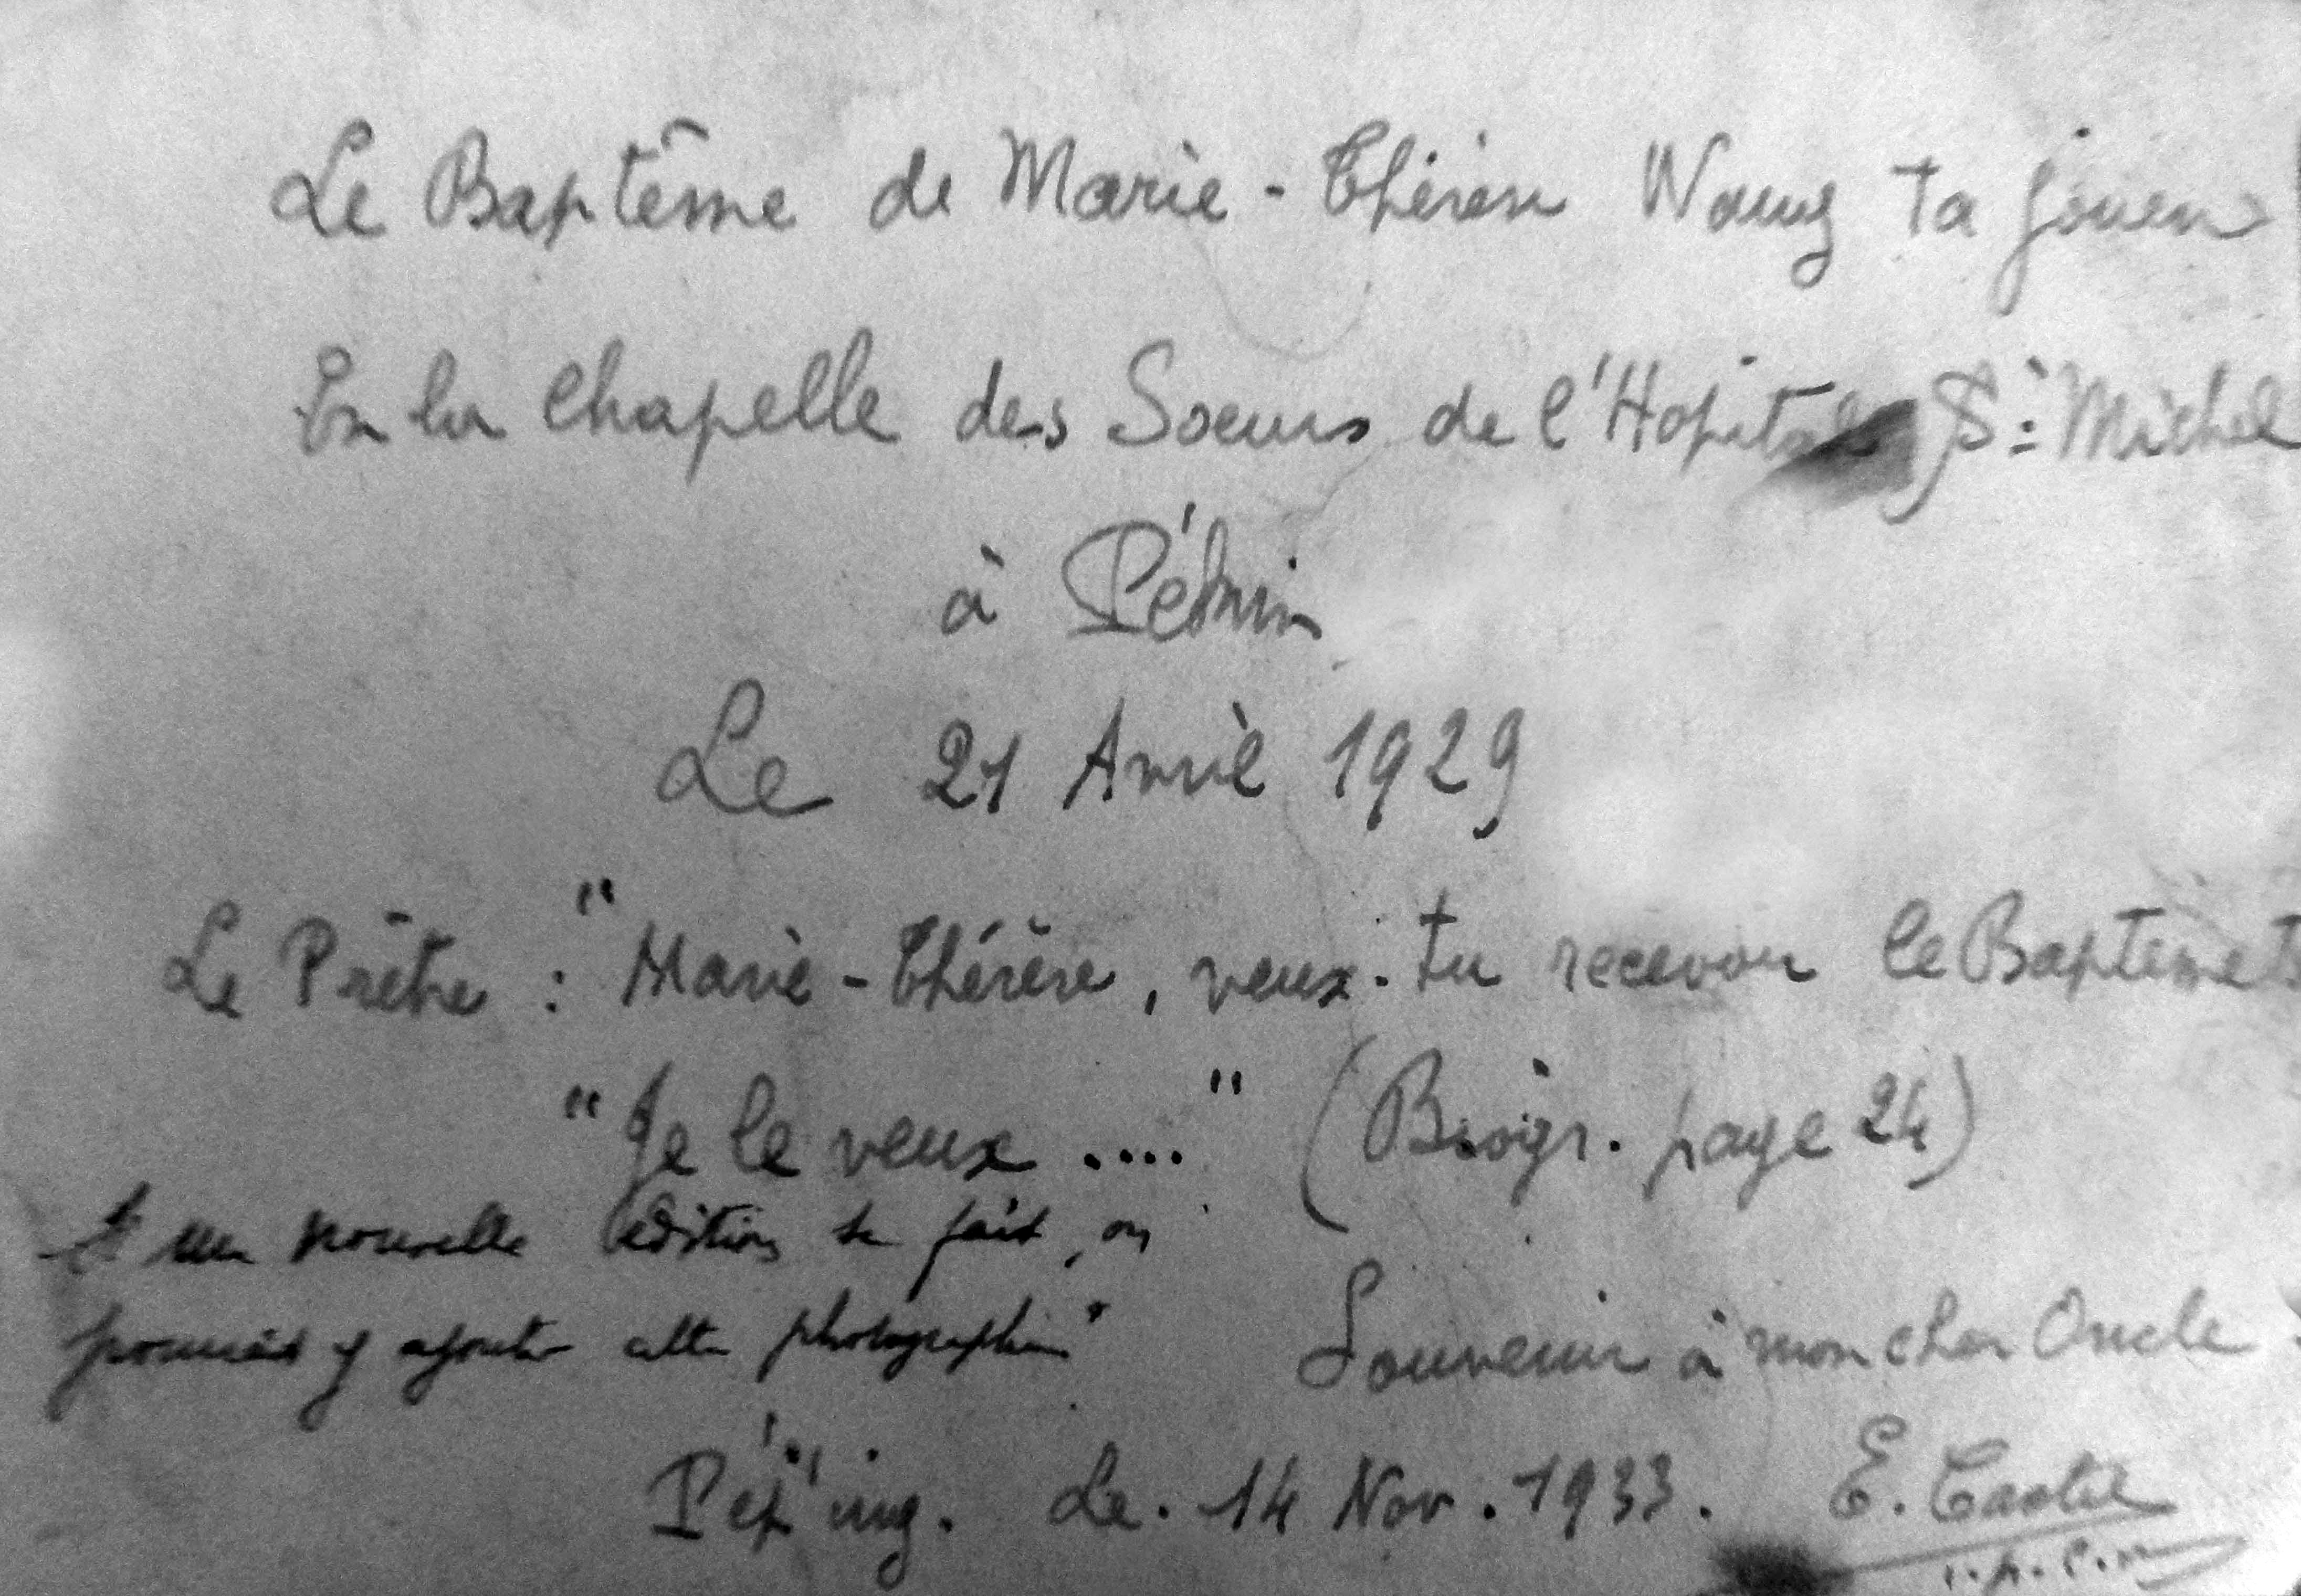 Le Baptême de Marie-Thérèse Wang ta jouen
En la Chapelle des Soeurs de l'Hopital St Michel
à Pékin
Le 21 Avril 1929
Le Prêtre : "Marie-Thérèse, veux-tu recevoir le Baptême
"Je le veux ...." (Biogr. page 24)
Si une nouvelle édition se fait, on
pourrait y ajouter cette photographie"
Souvenir à mon cher Oncle
Pép'ing. Le. 14 Nov. 1933. E. Castel